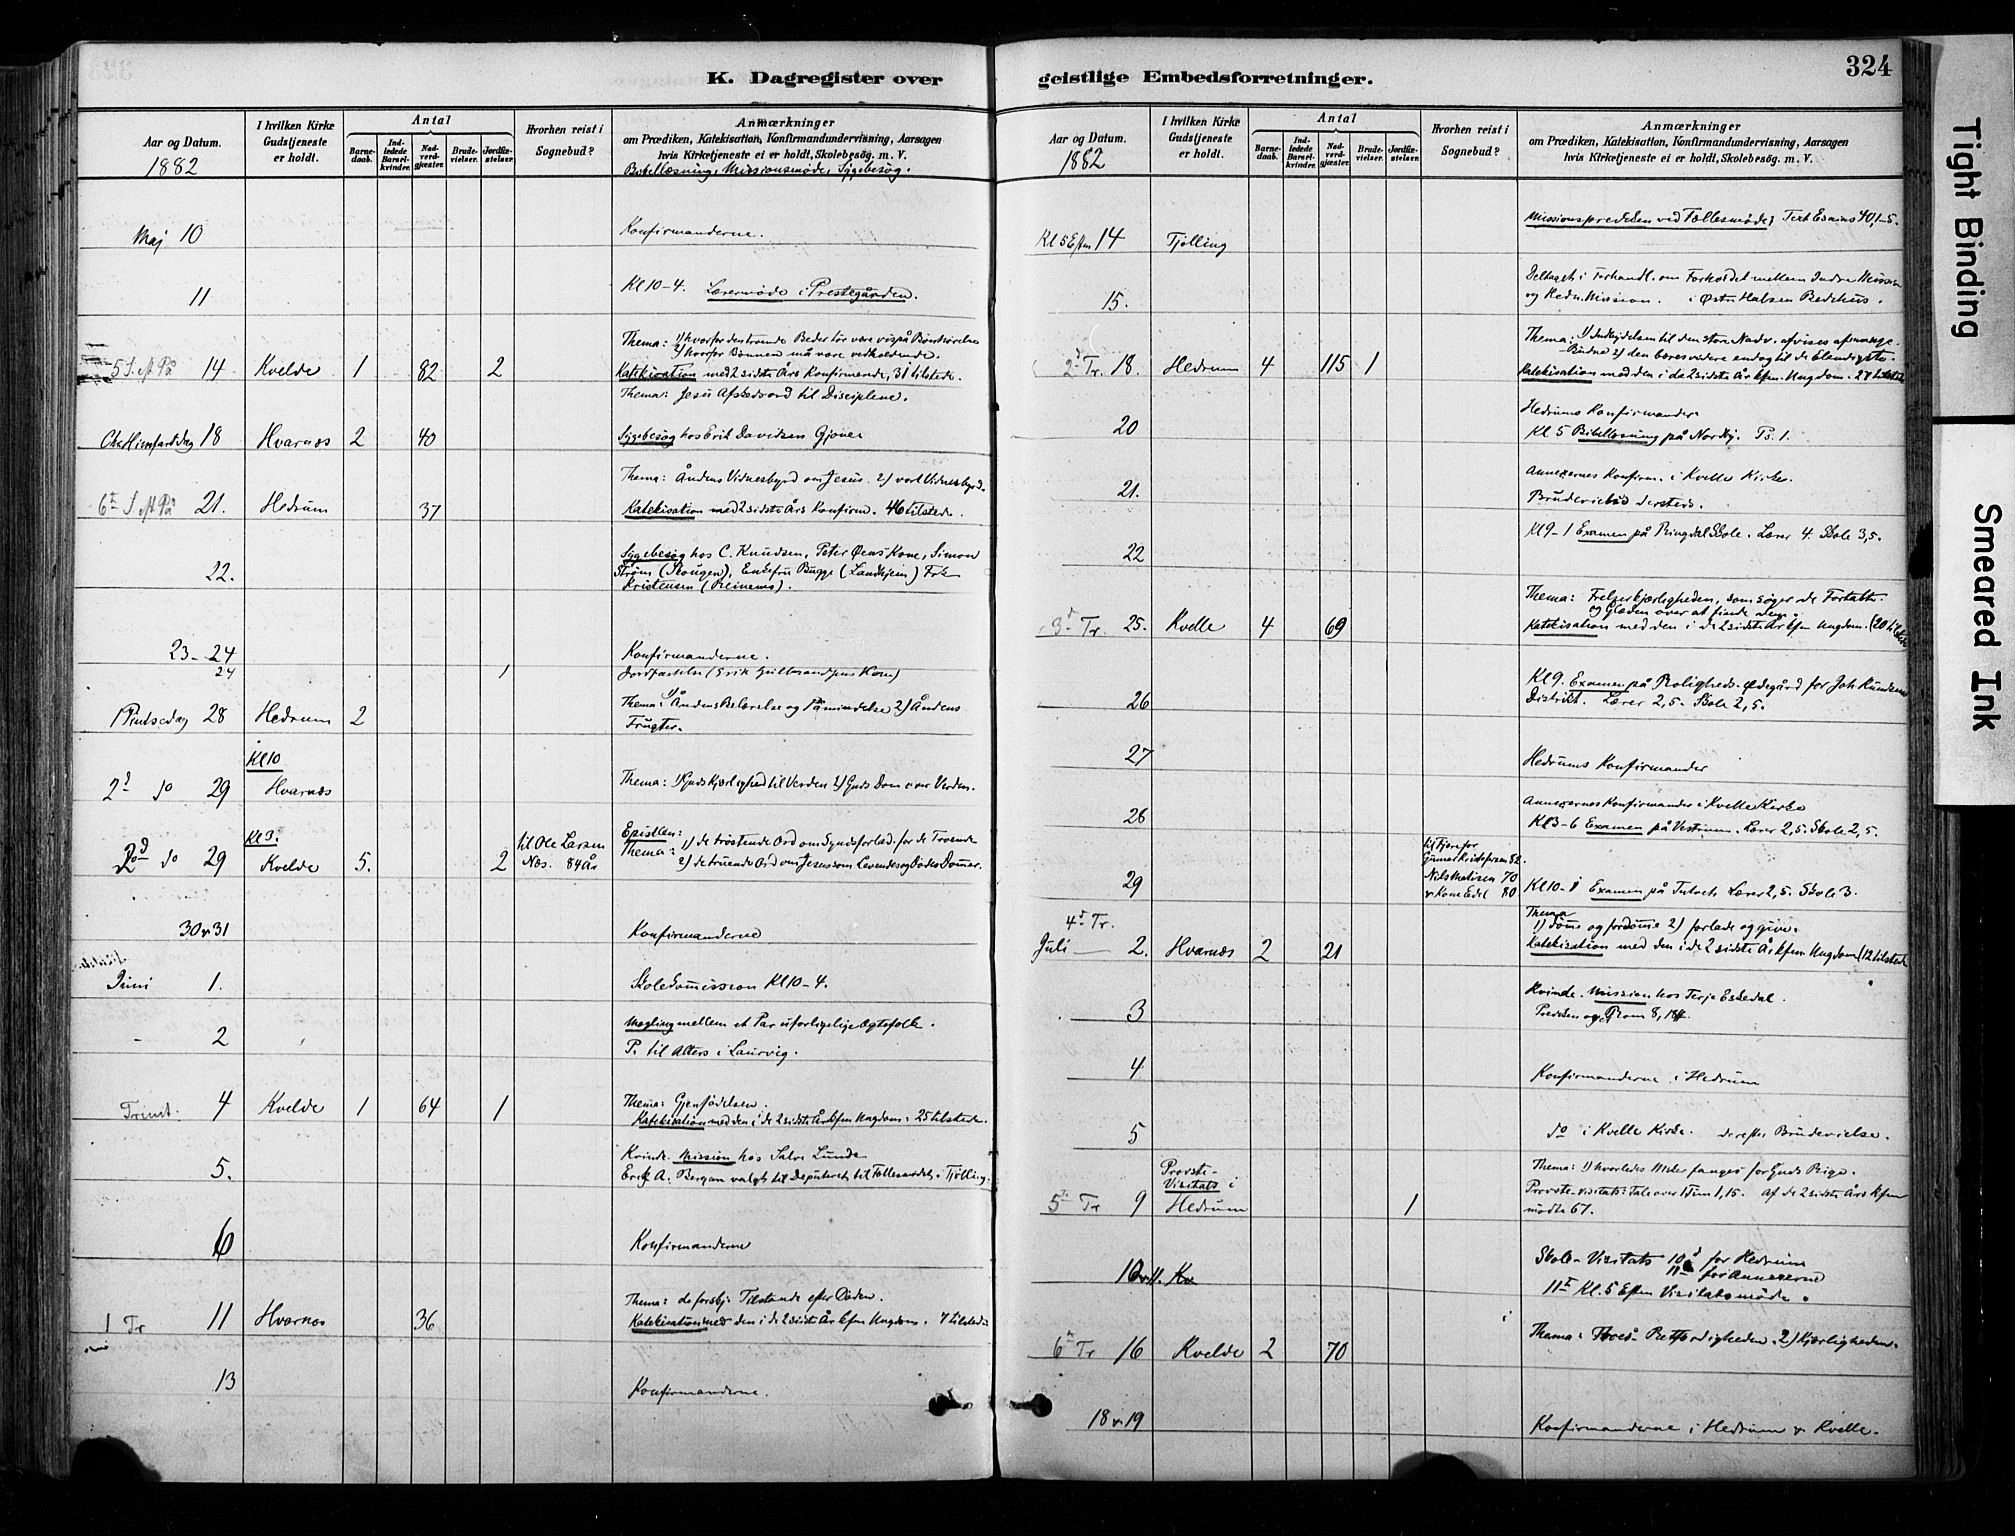 K. Dagregister over
Aar og Datum.
1882
I hvilken Kirke Gudstjeneste er holdt.
Antal
Barnedaab.
Indledede Barselkvinder.
Nadverdgjæster.
Brudevielser.
Jordfæstelser.
Hvorhen reist i Sognebud?
Anmærkninger
om Prædiken, Katekisation, Konfirmandundervisning, Aarsagen
hvis Kirketjeneste ei er holdt, Skolebesøg. m. V.
Bibellæsning, Missionsmøde, Sygebesøg.
Maj 10 Konfirmanderne.
11 Kl 10-4. Lærermøde i Prestegården.
Thema: 1) hvorfor den troende Beder tør være vis på Bønhørelse
2) hvorfor Bønnen må være vedholdende.
5 S. eft På 14 Kvelde 1 82 2 Katekisation med 2 sidste Års Konfirmerede, 31 tilstede.
Thema: Jesu Afskedsord til Disciplene.
Chr Himfartsdag 18 Hvarnæs 2 40 Sygebesøg hos Erik Davidsen Gjone
Thema: Åndens Vidnesbyrd om Jesus. 2) vort Vidnesbyrd.
6te S eft På 21. Hedrum 37 Katekisation med 2 sidste Års Konfirm. 46 tilstede.
Sygebesøg hos C. Knudsen, Peter Øens Kone, Simon
22. Strøm (Skougen), Enkefru Bugge (Landhjem) Frk
Kristensen (Reinems).
23-24 Konfirmanderne.
24 1 Jordfæstelse (Erik Gulbrandsens Kone)
Pindsedag 28 Hedrum 2 Thema: 1) Åndens Belærelse og Påmindelse 2) Åndens
Frugter.
Kl 10
2d do 29 Hvarnæs Thema: 1) Guds Kjærlighed til Verden 2) Guds Dom over Verden.
Kl 3.
2d do 29 Kvelde 5. 2 til Ole Larsen
Næs. 84 år
Epistlen:
Thema: 1) de trøstende Ord om Syndsforlad. for de Troende
2) de truende Ord om Jesus som Levendes og Dødes Dommer.
30 & 31 Konfirmanderne
Juni 1. Skolecommission Kl 10-4.
2 Mægling mellem et Par uforligelige Ægtefolk.
P. til Alters i Laurvig.
Trinit. 4 Kvelde 1 64 1 Thema: Gjenfødelsen.
Katekisation med den i de 2 sidste År kfm Ungdom. 25 tilstede.
5. Kvinde-Mission hos Salve Lunde
Erik A. Bergan valgt til Deputeret til Fællesmødet i Tjølling.
6 Konfirmanderne
1 Tr 11 Hvarnes 36 Thema: de forskj. Tilstande efter Døden.
Katekisation med den i de 2 sidste År kfm Ungdom. 7 tilstede
13 Konfirmanderne.
geistlige Embedsforretninger.
324
Aar og Datum.
1882
I hvilken Kirke Gudstjeneste er holdt.
Antal
Barnedaab.
Indledede Barselkvinder.
Nadverdgjæster.
Brudevielser.
Jordfæstelser.
Hvorhen reist i Sognebud?
Anmærkninger
om Prædiken, Katekisation, Konfirmandundervisning, Aarsagen
hvis Kirketjeneste ei er holdt, Skolebesøg. m. V.
Kl 5 Eftm 14 Tjølling Missionspredeken ved Fællesmøde; Text Esaias 40,1-5.
15. Deltaget i Forhandl. om Forholdet mellem Indre Mission
og Hedn. Mission. i Østre Halsen Bedehus.
Thema: 1) Indbydelsen til den store Nadv. afvises af mange
Budne 2) den bæres videre endog til de Elendigste.
2d Tr. 18. Hedrum 4 115 1 Katekisation med den i de 2 sidste År kfm. Ungdom. 27 tilstede
20 Hedrums Konfirmander
Kl 5 Bibellæsning på Nordby. Ps. 1.
21. Annexernes Konfirm. i Kvelle Kirke.
Brudevielse dersteds.
22 Kl 9-1 Examen på Ringdal Skole. Lærer 4. Skole 3,5.
Thema: Frelserkjærligheden, som søger de Fortabte
og Glæden over at finde dem.
3d Tr. 25. Kvelle 4 69 Katekisation med den i de 2 sidste År kfm Ungdom. (20 tilstede
26 Kl 9. Examen på Roligheds-Ødegård for Joh Knudsens
Distrikt. Lærer 2,5. Skole 2,5.
27 Hedrums Konfirmander
28 Annexernes Konfirmander i Kvelle Kirke
Kl 3-6 Examen på Vestrum. Lærer 2,5. Skole 2,5.
29 til Fjære for
Gunar Kristofersen 82.
Nils Matisen 70
& Kone Edel 80
Kl 10-1 Examen på Lærer 2,5. Skole 3.
4d Tr. Thema
1) dømme og fordømme 2) forlade og give.
Juli 2. Hvarnæs 2 21 Katekisation med den i de 2 sidste År kfm. Ungdom (12 tilstede
3 Kvinde-Mission hos Terje Eskedal.
Predeken over Rom 8,
4 Konfirmanderne i Hedrum
5 do i Kvelle Kirke. derefter Brudevielse.
Provste-
Visitats i
5te Tr 9 Hedrum 1 Thema: 1) hvorledes Mister fanges for Guds Rige.
Provste-visitats: Tale over 1 Tim 1,15. af de 2 sidste Års kfm
mødte 67.
10 & 11. Kv Skole-Visitats 10d for Hedrum
11te for Annexerne
11te Kl. 5 Eftm Visitatsmøde.
6te Tr 16 Kvelde 2 70 Thema: Retfærdigheden. 2) Kjærligheden.
18 & 19 Konfirmanderne i Hedrum & Kvelle.
Tight Binding
Smeared Ink